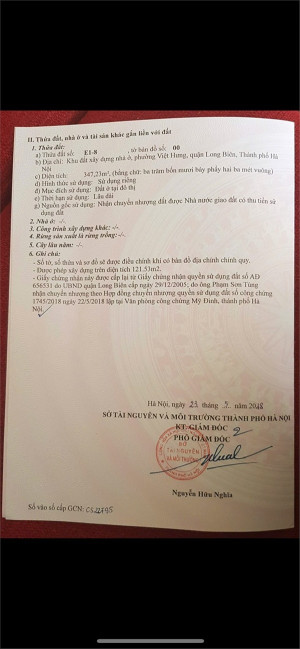 II. Thửa đất, nhà ở và tài sản khác gắn liền với đất
1. Thửa đất:
a) Thửa đất số: E1-8 , tờ bản đồ số: 00
b) Địa chỉ: Khu đất xây dựng nhà ở, phường Việt Hưng, quận Long Biên, Thành phố Hà
Nội
c) Diện tích: 347,23m², (bằng chữ: ba trăm bốn mươi bảy phẩy hai ba mét vuông)
d) Hình thức sử dụng: Sử dụng riêng
đ) Mục đích sử dụng: Đất ở tại đô thị
e) Thời hạn sử dụng: Lâu dài
g) Nguồn gốc sử dụng: Nhận chuyển nhượng đất được Nhà nước giao đất có thu tiền sử
dụng đất
2. Nhà ở: -/-.
3. Công trình xây dựng khác: -/-.
4. Rừng sản xuất là rừng trồng: -/-.
5. Cây lâu năm: -/-.
6. Ghi chú:
- Số tờ, số thửa và sơ đồ sẽ được điều chỉnh khi có bản đồ địa chính chính quy.
- Được phép xây dựng trên diện tích 121.53m2.
- Giấy chứng nhận này được cấp lại từ Giấy chứng nhận quyền sử dụng đất số AD
656531 do UBND quận Long Biên cấp ngày 29/12/2005; do ông Phạm Sơn Tùng
nhận chuyển nhượng theo Hợp đồng chuyển nhượng quyền sử dụng đất số công chứng
1745/2018 ngày 22/5/2018 lập tại Văn phòng công chứng Mỹ Đình, thành phố Hà
Nội.
Hà Nội, ngày 23 tháng 7 năm 2018
SỞ TÀI NGUYÊN VÀ MÔI TRƯỜNG THÀNH PHỐ HÀ NỘI
KT.GIÁM ĐỐC
PHÓ GIÁM ĐỐC
SỞ
TÀI NGUYÊN
VÀ MÔI TRƯỜNG
Nguyễn Hữu Nghĩa
Số vào sổ cấp GCN: